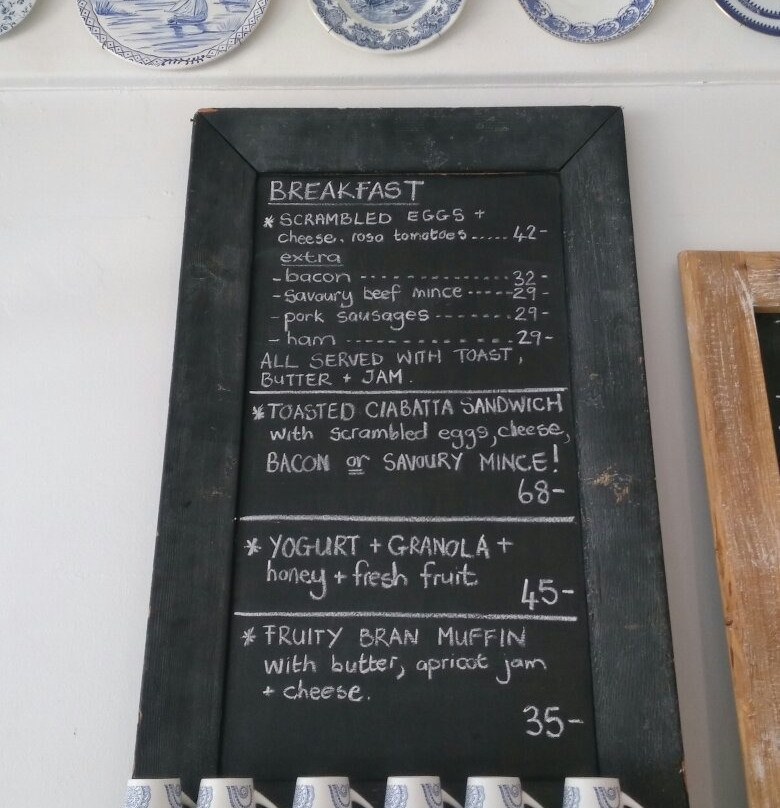 BREAKFAST
* SCRAMBLED EGGS +
cheese. rosa tomatoes ..... 42-
extra
- bacon --------------- 32-
- Savoury beef mince ----- 29-
- pork sausages ------- 29-
- ham --------------- 29-
ALL SERVED WITH TOAST,
BUTTER + JAM.
* TOASTED CIABATTA SANDWICH
with scrambled eggs, cheese,
BACON or SAVOURY MINCE!
68-
* YOGURT + GRANOLA +
honey + fresh fruit
45-
* FRUITY BRAN MUFFIN
with butter, apricot jam
+ cheese.
35-